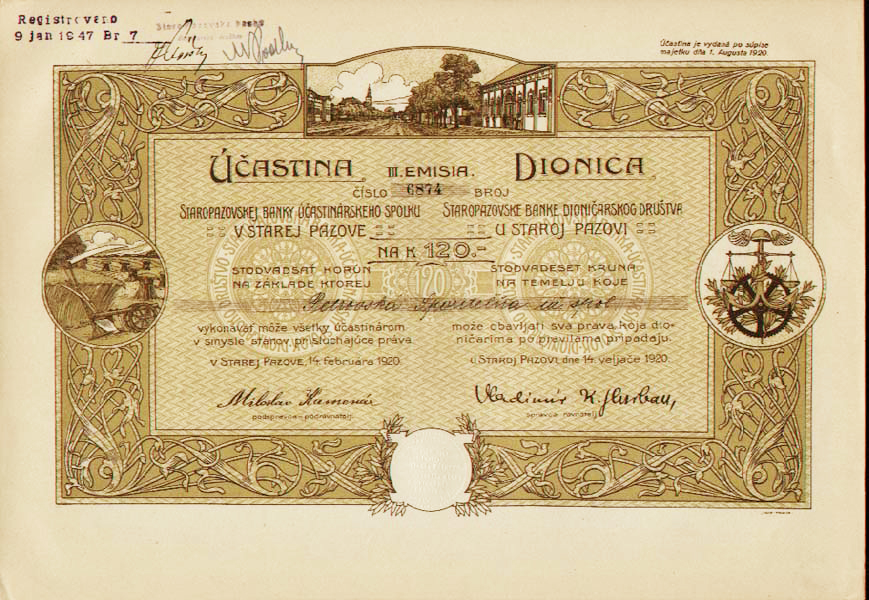 Registrovano
9 jan 1947 Br 7
Účastina je vydaná po súpise
majetku dňa 1. Augusta 1920.
ÚČASTINA III. EMISIA. DIONICA
ČÍSLO 6874 BROJ
STAROPAZOVSKEJ BANKY ÚČASTINÁRSKEHO SPOLKU
V STAREJ PAZOVE
STAROPAZOVSKE BANKE DIONIČARSKOG DRUŠTVA
U STAROJ PAZOVI
NA K 120.-
STODVADSAŤ KORÚN
NA ZÁKLADE KTOREJ
STODVADESET KRUNA
NA TEMELJU KOJE
120
vykonávať môže všetky účastinárom
v smysle stanov prislúchajúce práva
može obavljati sva prava koja dio-
ničarima po pravilama pripadaju.
V STAREJ PAZOVE, 14. februára 1920.
U STAROJ PAZOVI, dne 14. veljače 1920.
Miloslav Kamenár
podspravca - podravnatelj.
Vladimír K. Hurban,
spravca ravnatelj